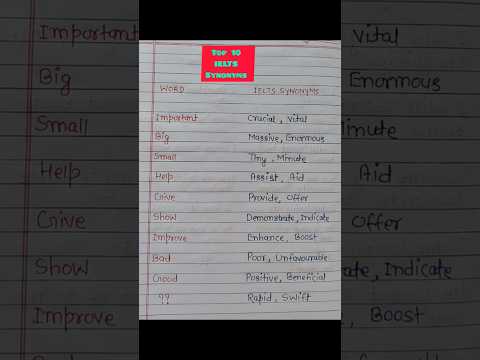 Top 10
IELTS
Synonyms
WORD IELTS SYNONYMS
Important Crucial, Vital
Big Massive, Enormous
Small Tiny, Minute
Help Assist, Aid
Give Provide, Offer
Show Demonstrate, Indicate
Improve Enhance, Boost
Bad Poor, Unfavourable
Good Positive, Beneficial
?? Rapid, Swift
Important
Big
Small
Help
Give
Show
Improve
Vital
Enormous
Minute
Aid
Offer
Indicate
, Boost